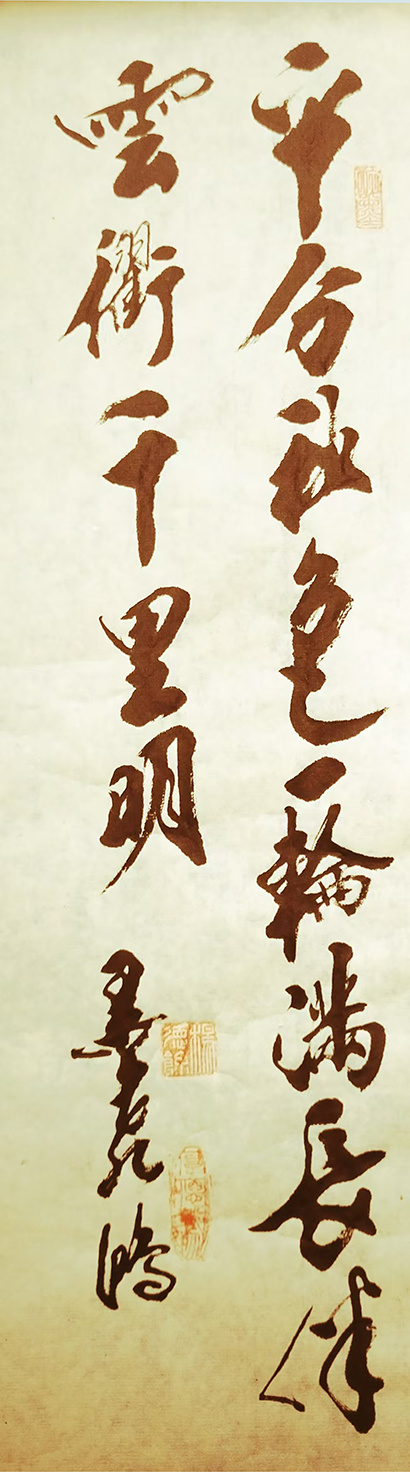 平分秋色一輪滿長伴
雲衢千里明